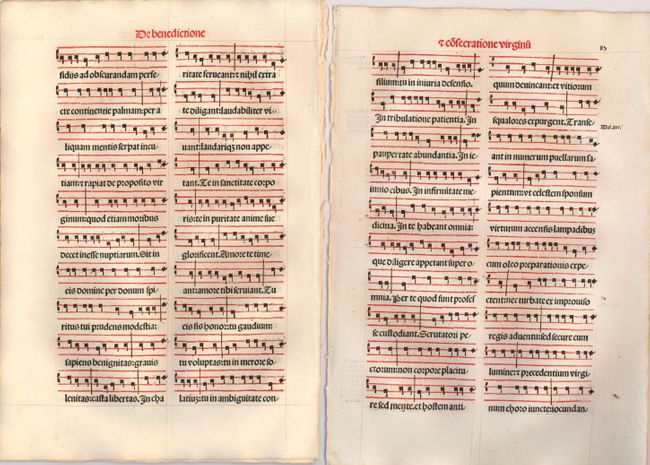 De benedictione
sidijs ad obscurandam perfe-
cte continentie palmam: per a
liquam mentis serpat incu
tiam: τ rapiat de proposito vir
ginum: quod etiam moribus
decet inesse nuptiarum. Sit in
eis domine per donum spi-
ritus tui prudens modestia:
sapiens benignitas: grauis
lenitas: casta libertas. In cha
ritate ferueant: τ nihil extra
te diligant: laudabiliter vi-
uant: laudariqʒ non appe-
tant. Te in sanctitate corpo
ris: te in puritate anime sue
glorificent. Amore te time-
ant: amore tibi seruiant. Tu
eis sis honor: tu gaudium:
tu voluptas: tu in merore so-
latiuʒ: tu in ambiguitate con-
τ cōsecratione virginū
85
silium: tu in iniuria defensio.
In tribulatione patientia. In
paupertate abundantia. In ie-
iunio cibus. In infirmitate me-
dicina. In te habeant omnia:
que diligere appetant super o-
mnia. Per te quod sunt profes
se custodiant. Scrutatori pe-
ctorum: non corpore placitu-
re sed mente. et hostem anti
quum deuincant: et vitiorum
squalores expurgent. Transe-
ant in numerum puellarum sa-
pientum: vt celestem sponsum
virtutum accensis lampadibus
cum oleo preparationis expe-
ctent: nec turbate ex improuiso
regis aduentu: sed secure cum
lumine: τ precedentium virgi-
num choro iuncte: iocundan-